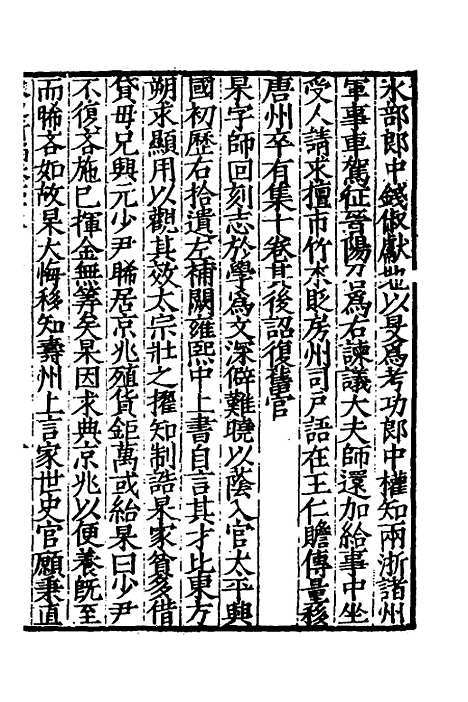 水部郎中錢俶獻地以旻爲考功郎中權知兩浙諸州
軍事車駕征晉陽召爲右諫議大夫師還加給事中坐
受人請求擅市竹木貶房州司戶語在王仁贍傳量移
唐州卒有集十卷其後詔復舊官
杲字師回刻志於學爲文深僻難曉以蔭入官太平興
國初歷右拾遺左補闕雍熙中上書自言其才比東方
朔求顯用以觀其效太宗壯之擢知制誥杲家貧多借
貸母兄興元少尹晞居京兆殖貨鉅萬或紿杲曰少尹
不復吝施已揮金無筭矣杲因求典京兆以便養旣至
而晞吝如故杲大悔移知壽州上言家世史官願秉直